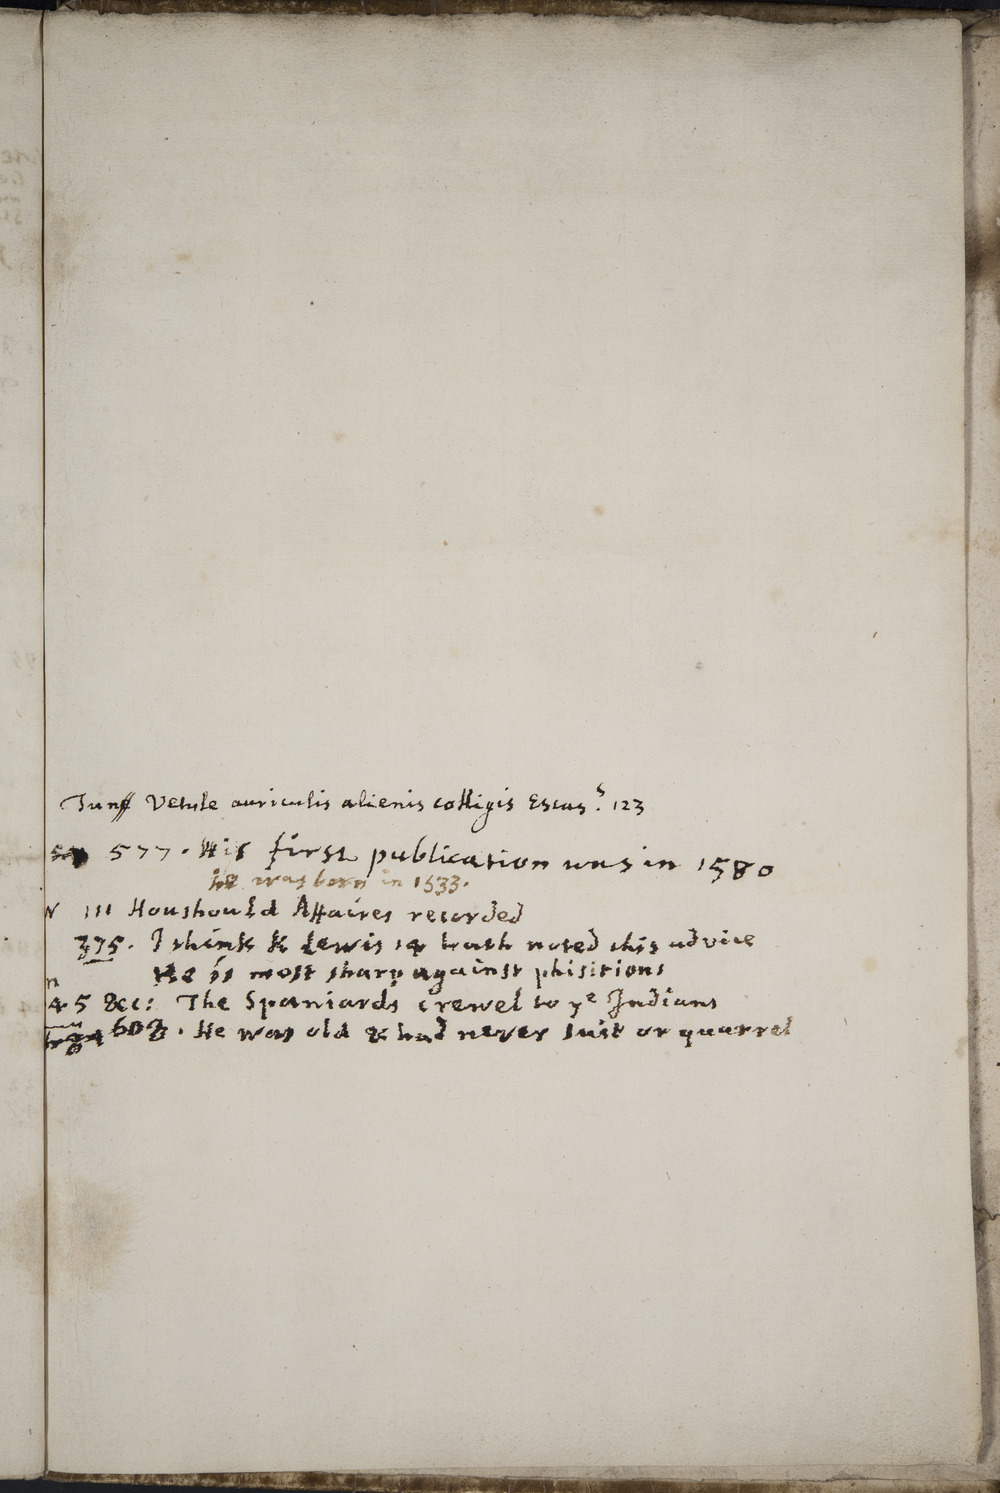 Tun Vetule auriculis alienis colligis Escas? 123
577. His first publication was in 1580
He was born in 1533.
N 111 Houshould Affaires recorded
375. I think K Lewis 14 hath noted this advice
He is most sharp against phisitions
n
45 &c: The Spaniards crewel to yᵉ Indians
602. He was old & had never suit or quarrel